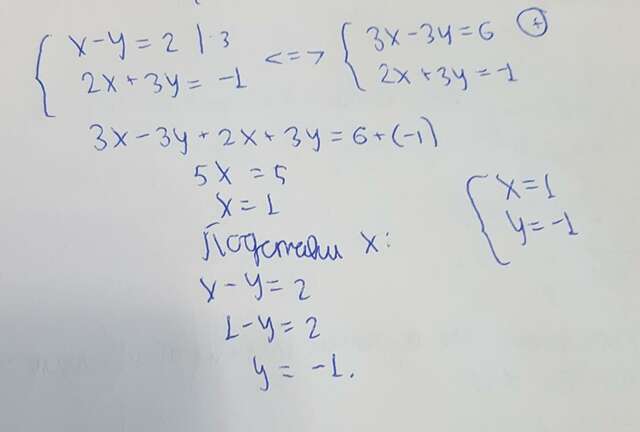 { x-y=2 |·3 <=> { 3x-3y=6 (+)
2x+3y=-1 2x+3y=-1
3x-3y+2x+3y=6+(-1)
5x=5
x=1
Подставим x:
x-y=2
1-y=2
y=-1.
{ x=1
y=-1